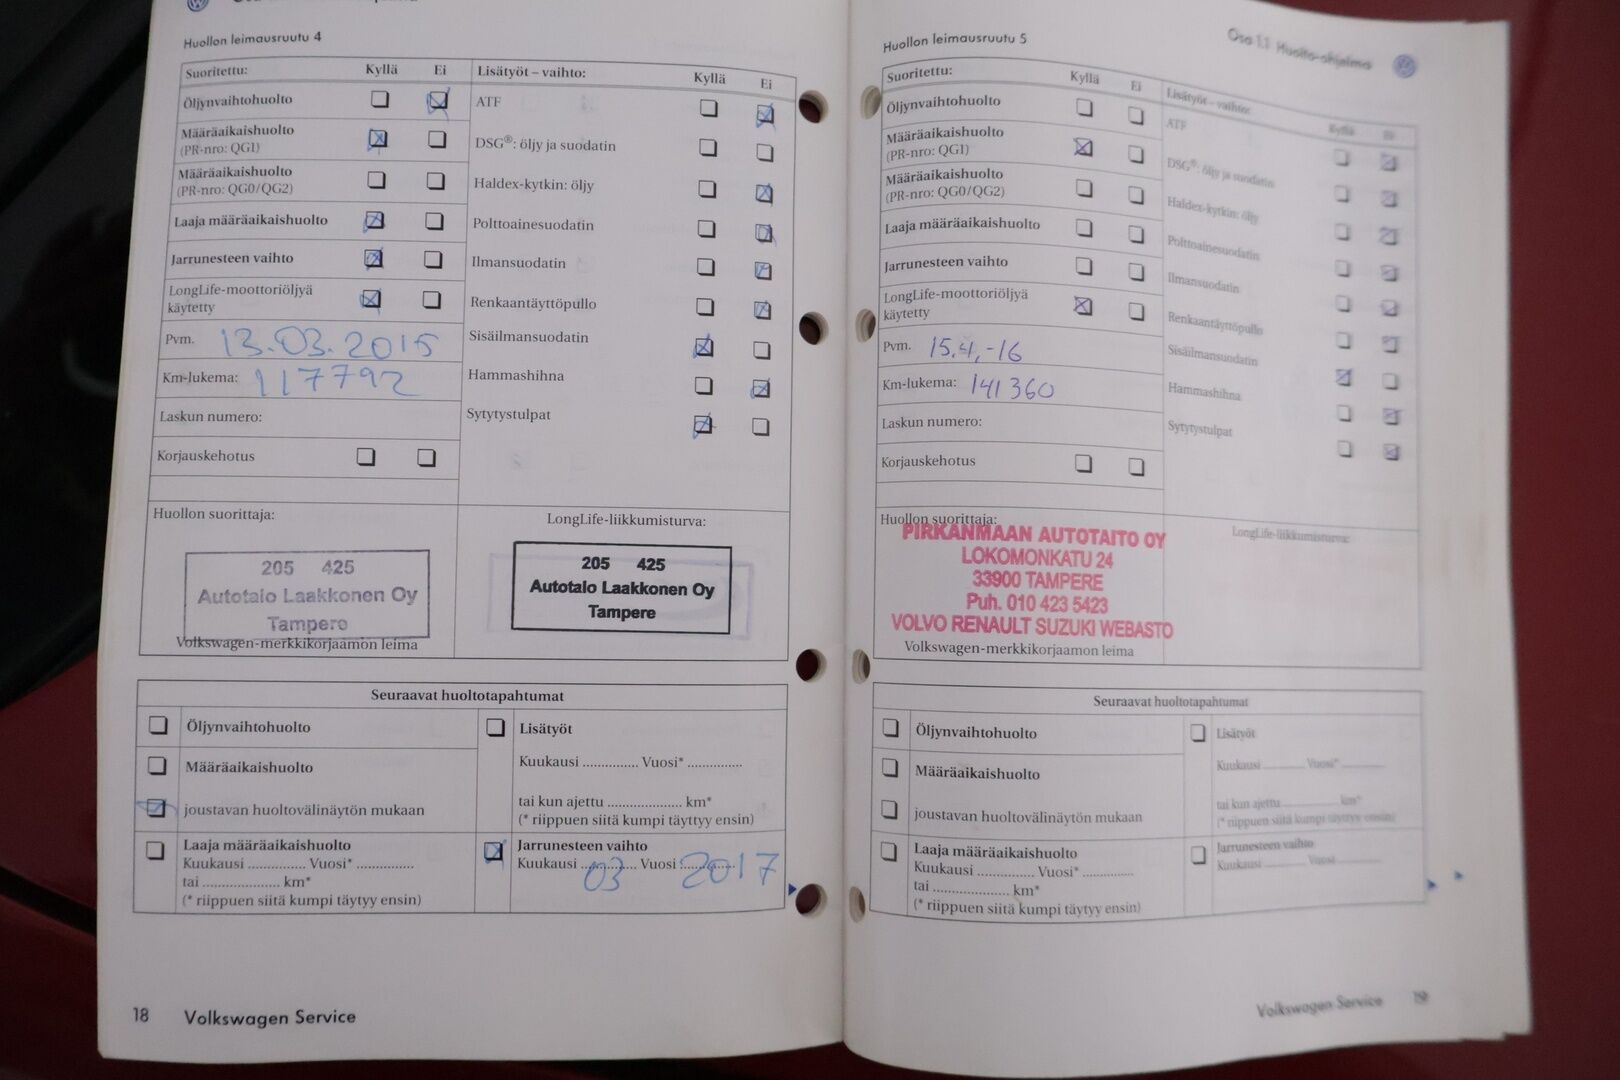 Huollon leimausruutu 4
Suoritettu: Kyllä Ei
Öljynvaihtohuolto
Määräaikaishuolto
(PR-nro: QG1)
Määräaikaishuolto
(PR-nro: QG0/QG2)
Laaja määräaikaishuolto
Jarrunesteen vaihto
LongLife-moottoriöljyä
käytetty
Pvm. 13.03.2015
Km-lukema: 117792
Laskun numero:
Korjauskehotus
Lisätyöt – vaihto: Kyllä Ei
ATF
DSG®: öljy ja suodatin
Haldex-kytkin: öljy
Polttoainesuodatin
Ilmansuodatin
Renkaantäyttöpullo
Sisäilmansuodatin
Hammashihna
Sytytystulpat
Huollon suorittaja:
205 425
Autotalo Laakkonen Oy
Tampere
Volkswagen-merkkikorjaamon leima
LongLife-liikkumisturva:
205 425
Autotalo Laakkonen Oy
Tampere
Seuraavat huoltotapahtumat
Öljynvaihtohuolto
Määräaikaishuolto
joustavan huoltovälinäytön mukaan
Laaja määräaikaishuolto
Kuukausi .............. Vuosi* ..............
tai .................... km*
(* riippuen siitä kumpi täytyy ensin)
Lisätyöt
Kuukausi .............. Vuosi* ..............
tai kun ajettu .................... km*
(* riippuen siitä kumpi täyttyy ensin)
Jarrunesteen vaihto
Kuukausi 03 Vuosi 2017
18 Volkswagen Service
Osa 1.1 Huolto-ohjelma
Huollon leimausruutu 5
Suoritettu: Kyllä Ei
Öljynvaihtohuolto
Määräaikaishuolto
(PR-nro: QG1)
Määräaikaishuolto
(PR-nro: QG0/QG2)
Laaja määräaikaishuolto
Jarrunesteen vaihto
LongLife-moottoriöljyä
käytetty
Pvm. 15.4.-16
Km-lukema: 141360
Laskun numero:
Korjauskehotus
Lisätyöt – vaihto: Kyllä Ei
ATF
DSG®: öljy ja suodatin
Haldex-kytkin: öljy
Polttoainesuodatin
Ilmansuodatin
Renkaantäyttöpullo
Sisäilmansuodatin
Hammashihna
Sytytystulpat
Huollon suorittaja:
PIRKANMAAN AUTOTAITO OY
LOKOMONKATU 24
33900 TAMPERE
Puh. 010 423 5423
VOLVO RENAULT SUZUKI WEBASTO
Volkswagen-merkkikorjaamon leima
LongLife-liikkumisturva:
Seuraavat huoltotapahtumat
Öljynvaihtohuolto
Määräaikaishuolto
joustavan huoltovälinäytön mukaan
Laaja määräaikaishuolto
Kuukausi .............. Vuosi* ..............
tai .................... km*
(* riippuen siitä kumpi täytyy ensin)
Lisätyöt
Kuukausi .............. Vuosi* ..............
tai kun ajettu .................... km*
(* riippuen siitä kumpi täyttyy ensin)
Jarrunesteen vaihto
Kuukausi .............. Vuosi ..............
Volkswagen Service 19